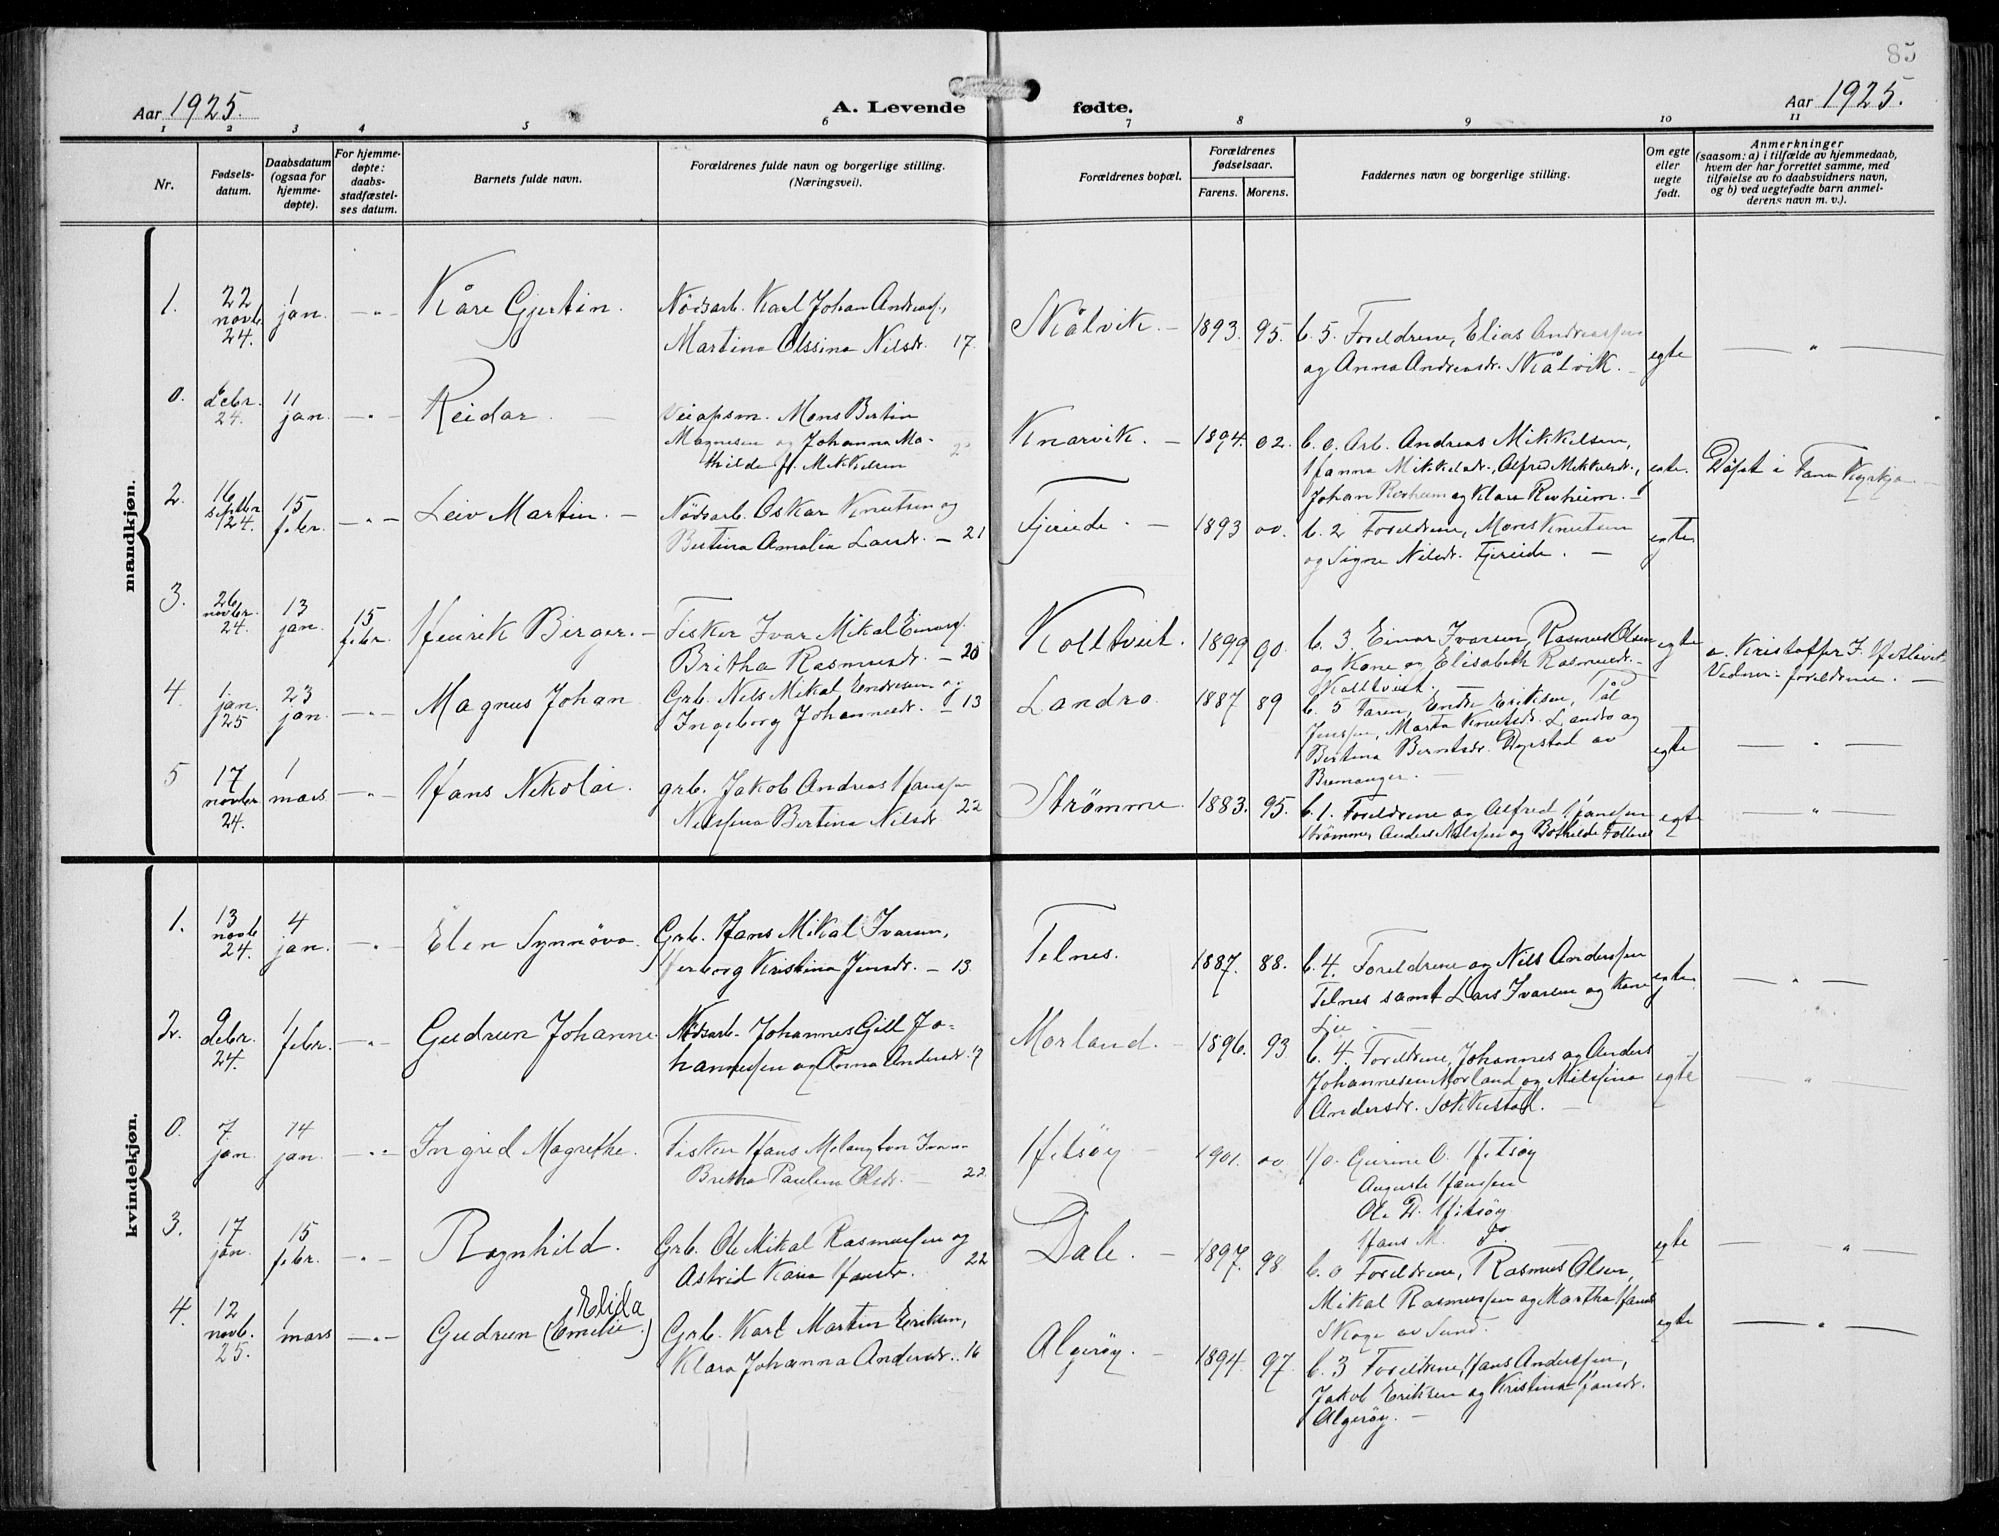 85
Aar 1925.
A. Levende fødte.
Aar 1925.
1 2 3 4 5 6 7 8 9 10 11
Nr.
Fødsels-
datum.
Daabsdatum
(ogsaa for
hjemme-
døpte).
For hjemme-
døpte:
daabs-
stadfæstel-
ses datum.
Barnets fulde navn.
Forældrenes fulde navn og borgerlige stilling.
(Næringsvei).
Forældrenes bopæl.
Forældrenes
fødselsaar.
Farens. Morens.
Faddernes navn og borgerlige stilling.
Om egte
eller
uegte
født.
Anmerkninger
(saasom: a) i tilfælde av hjemmedaab,
hvem der har forrettet samme, med
tilføielse av to daabsvidners navn,
og b) ved uegtefødte barn anmel-
derens navn m. v.).
mandkjøn.
1.
22
novb.
24.
1
jan.
Kåre Gjertin.
Nödsarb. Karl Johan Andreas.,
Martina Olssina Nilsdr. 17.
Skålvik. –
1893. 95.
b. 5. Foreldrene, Elias Andreassen
og Anna Andreasdr. Skålvik. –
egte
0.
debr.
24.
11
jan.
Reidar. –
Mons Bertin
Magnesen og Johanna Ma-
thilde f. Mikkelsen
Knarvik. –
1894. 02.
b. 0. Arb. Andreas Mikkelsen,
Hanna Mikkelsdr., Alfred Mikkelsdr.,
Johan Revheim og Klara Revheim. –
egte.
Döpt i Fana Kyrkja –
2.
16
septbr
124.
15
febr.
Leiv Martin. –
Nödsarb. Oskar Knutsen og
Bertina Amalia Larsdr. – 21
Fjereide. –
1893 00.
b. 2 Foreldrene, Mons Knutsen
og Signe Nilsdr. Fjereide. –
egte
3.
26
novbr.
24.
13
jan.
15
febr.
Henrik Birger. –
Fisker Ivar Mikal Einars.
Britha Rasmusdr. – 20
Kolltveit.
1899 90.
b. 3 Einar Ivarsen, Rasmus Olsen
og Kone og Elisabeth Rasmusdr. –
Kolltveit. –
egte
a. Kristoffer J.
Vidner: foreldrene. –
4.
1
jan.
25
23
jan.
Magnus Johan
Grb. Nils Mikal Endresen og
Ingeborg Johannesdr. – 13
Landro.
1887 89
b. 5 Faren, Endre Eriksen, Pål
Jenssen, Marta Knutsdr. Landro og
Bertina Berntsdr. av
Bremanger. –
egte
5
17
novbr.
24.
1
mars
Hans Nikolai.
grb. Jakob Andreas Hanssen
Nilssina Bertina Nilsdr 22
Strömme.
1883. 95.
b. 1. Foreldrene og Alfred Hanssen
Strömme, Anders Nilssen og Bothilde
egte
kvindekjøn.
1.
13
novb
24.
4
jan.
Elen Synnöva.
Grb. Hans Mikal Ivarsen,
Herborg Kristina Jensdr. – 13
Telnes.
1887. 88.
b. 4. Foreldrene og Nils Anderssen
Telnes samt Lars Ivarsen og Kone
Lie –
egte
2.
9
debr.
24.
1
febr.
Gudrun Johanne
Nödsarb. Johannes Gill Jo-
hannessen og Anna Andersdr.
Morland. –
1896. 93.
b. 4. Foreldrene, Johannes og Anders
Johannesen Morland og Nilssina
Andersdr. Sekkestad. –
egte
0.
7.
jan.
14
jan.
Ingrid Magrethe.
Fisker Hans Melangton
Bretha Paulina Olsdr. – 22.
Hitsöy –
1901. 00.
Gurine O. Hitsöy
Auguste Hanssen
Ole D. Hitsöy
Hans M. Do.
3.
17
jan.
15
febr.
Ragnhild.
Grb. Ole Mikal Rasmussen og
Astrid Karia Hansdr. 22
Dale. –
1897. 98
b. 0 Foreldrene, Rasmus Olsen,
Mikal Rasmussen og Martha Hansdr
Skoge av Sund.
egte
4.
12
novb.
25.
1
mars
Elida
Gudrun (Emelie.)
Grb. Karl Martin Eriksen,
Klara Johanna Andersdr. 16
Algeröy. –
1894. 97.
b. 3 Foreldrene, Hans Anderssen,
Jakob Eriksen og Kristina Hansdr.
Algeröy. –
egte